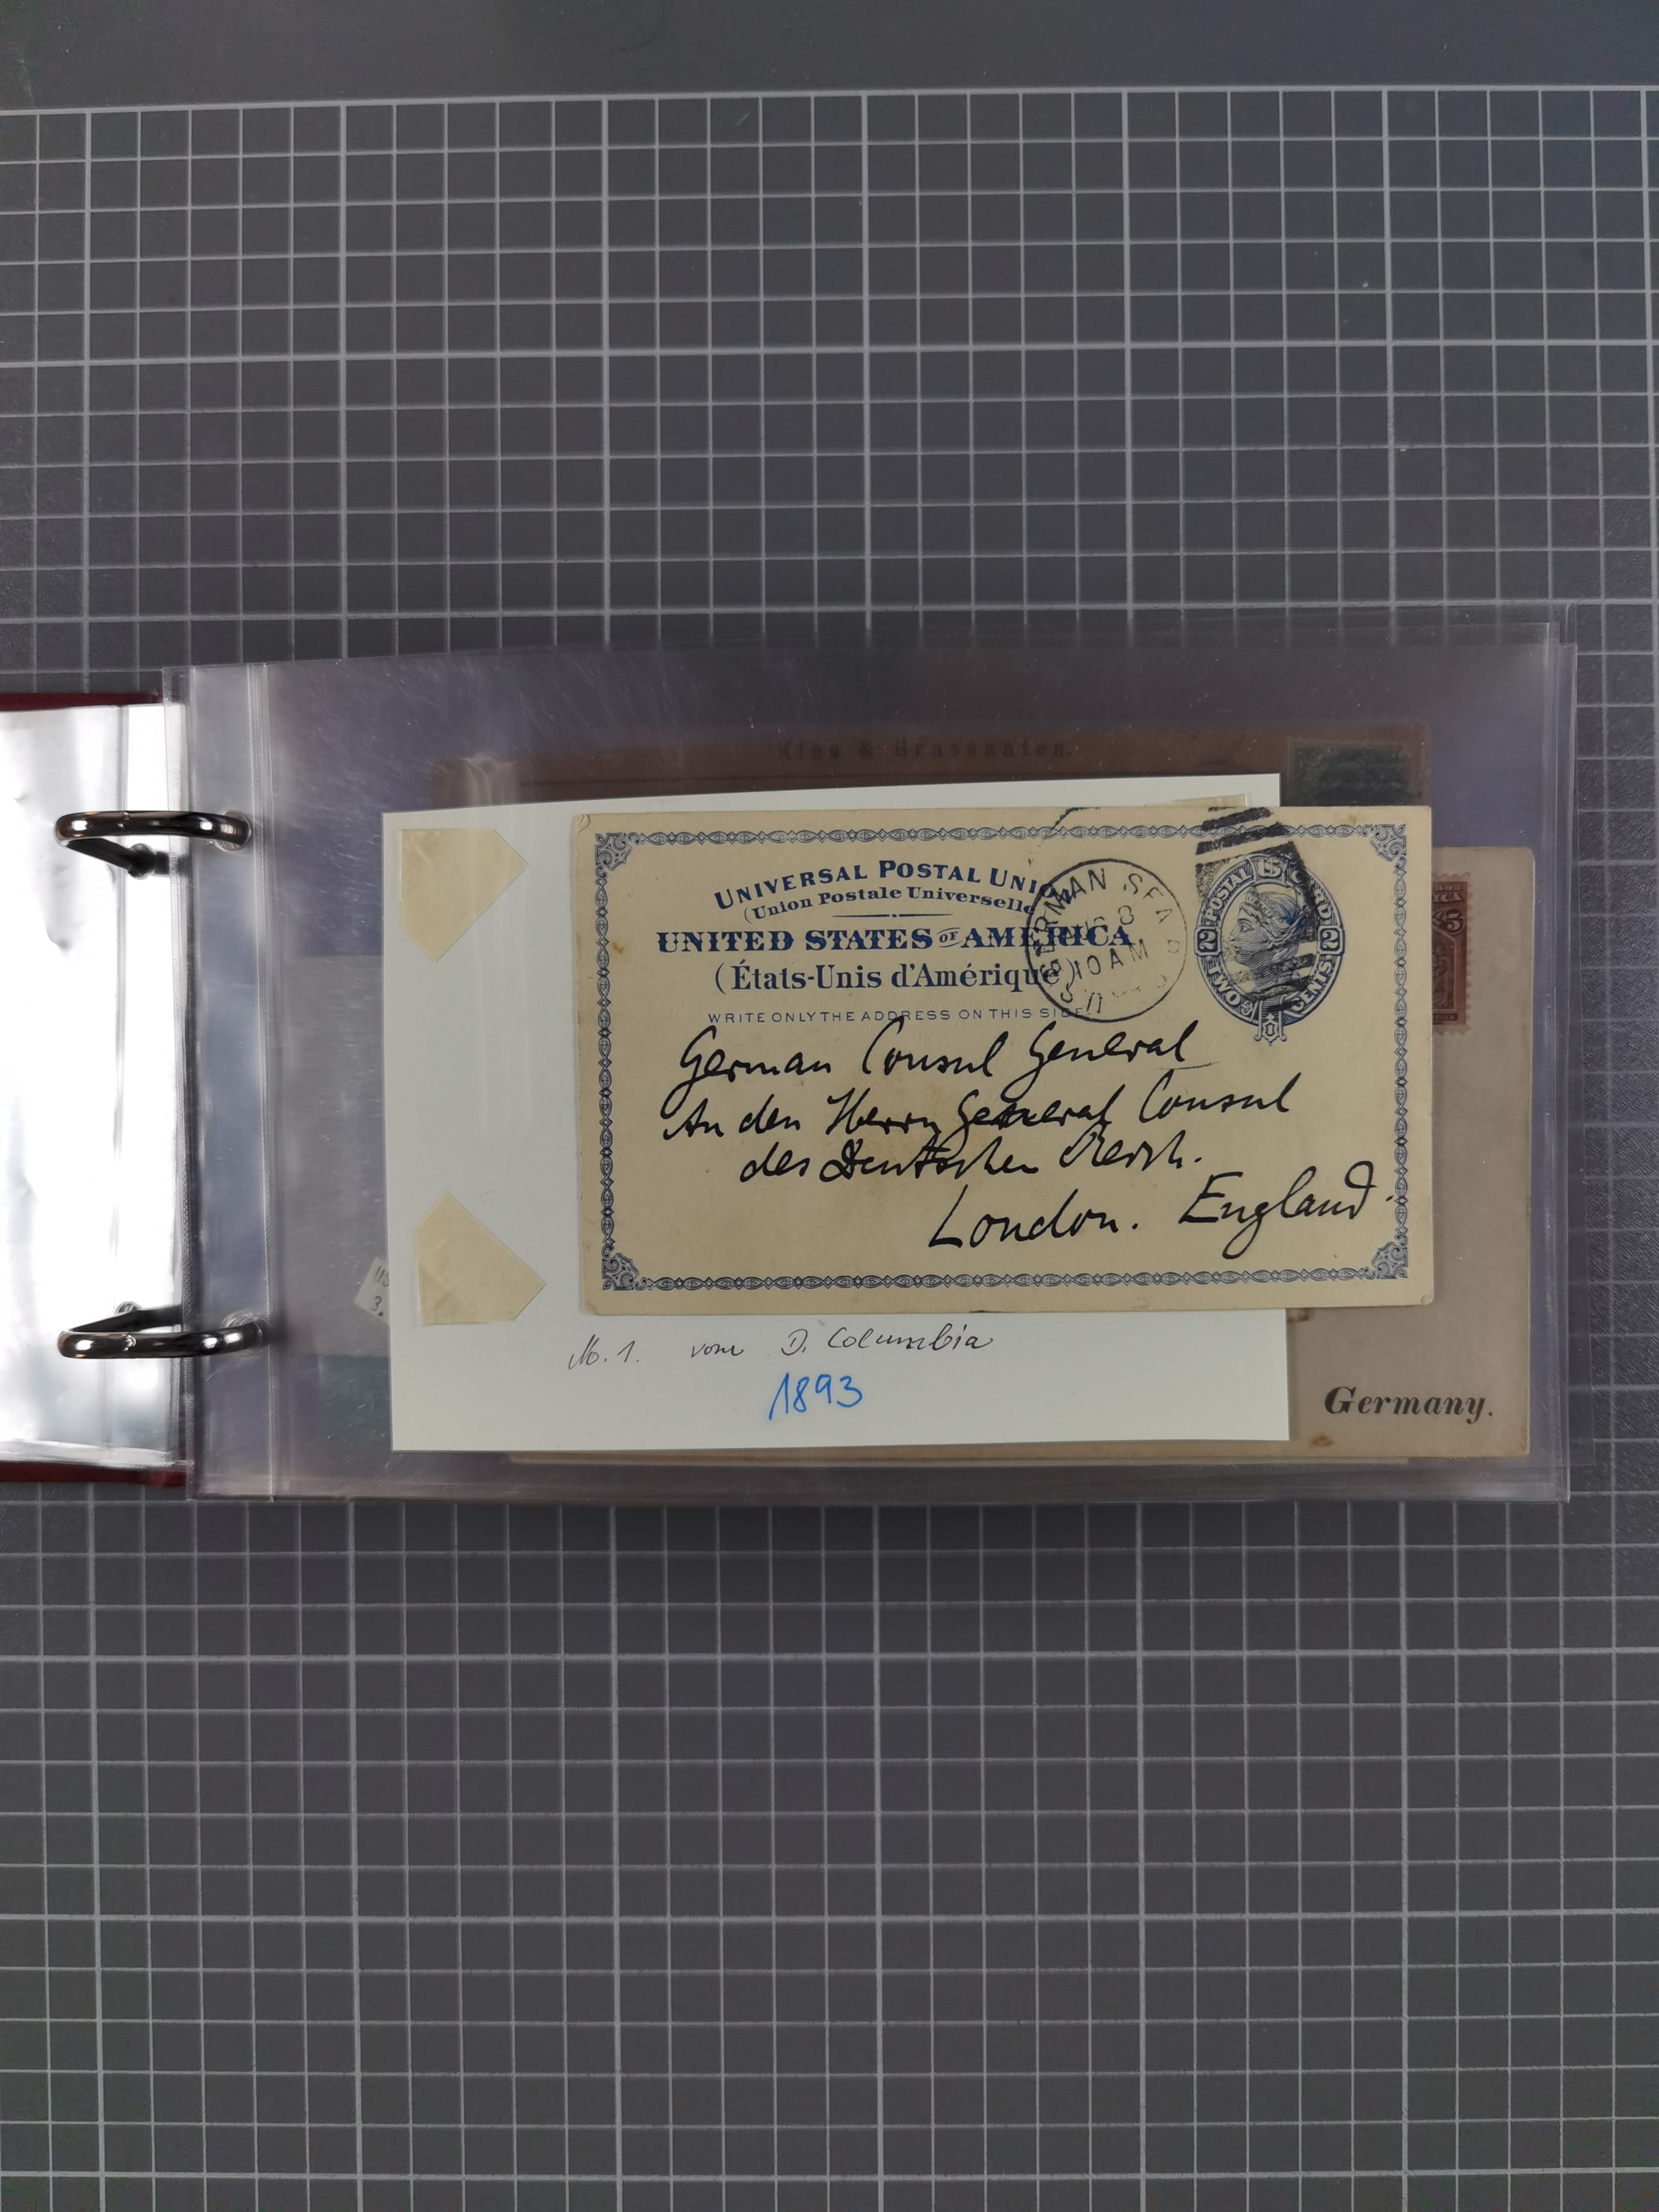 Klee & Grassaaten.
UNIVERSAL POSTAL UNION
(Union Postale Universelle
UNITED STATES OF AMERICA
(États-Unis d'Amérique)
WRITE ONLY THE ADDRESS ON THIS SIDE
GERMAN SEA P
8
10 AM
POSTAL CARD
U S
2 2
TWO CENTS
German Consul General
An den Herrn General Consul
des Deutschen Reich.
London. England
No. 1. vom D. Columbia
1893
5
3.
Germany.